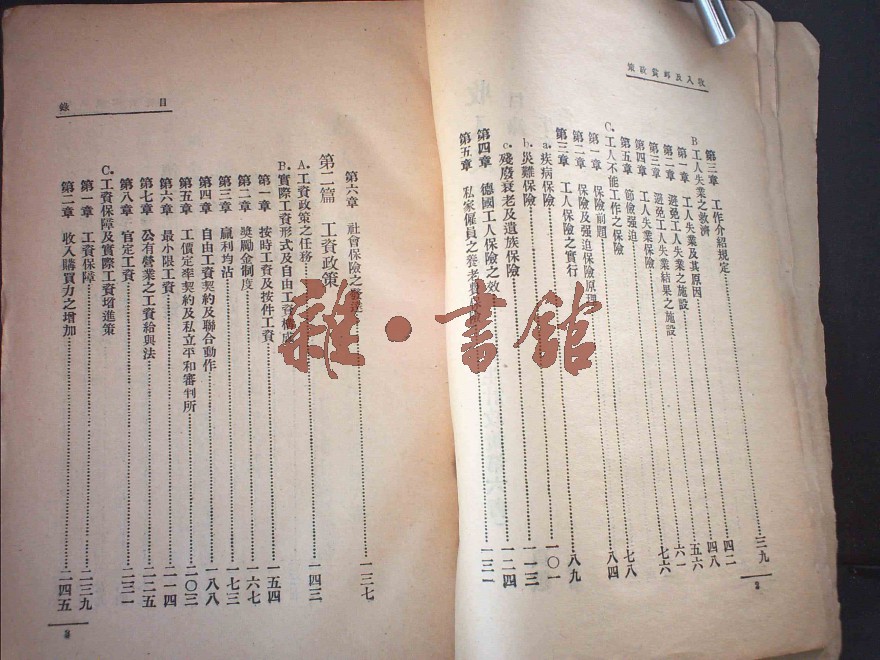 收入及卹貧政策
第三章 工作介紹規定……三九
B 工人失業之救濟
第一章 工人失業及其原因……四二
第二章 避免工人失業之施設……四八
第三章 避免工人失業結果之施設……五六
第四章 工人失業保險……六一
第五章 節儉强迫……七六
C. 工人不能工作之保險
第一章 保險前題……七八
第二章 保險及强迫保險原理……八四
第三章 工人保險之實行
a. 疾病保險……八九
b. 災難保險……一〇一
c. 殘廢衰老及遺族保險……一一三
第四章 德國工人保險之效……一二四
第五章 私家僱員之養老費保險……一三一
2
目錄
第六章 社會保險之發達……一三七
第二篇 工資政策
A. 工資政策之任務……一四三
B. 實際工資形式及自由工資構成
第一章 按時工資及按件工資……一五四
第二章 獎勵金制度……一六七
第三章 贏利均沾……一七三
第四章 自由工資契約及聯合動作……一八八
第五章 工價定率契約及私立平和審判所……二〇三
第六章 最小限工資……二一四
第七章 公有營業之工資給與法……二二五
第八章 官定工資……二三一
C. 工資保障及實際工資增進策
第一章 工資保障……二三九
第二章 收入購買力之增加……二四五
3
雜·書館